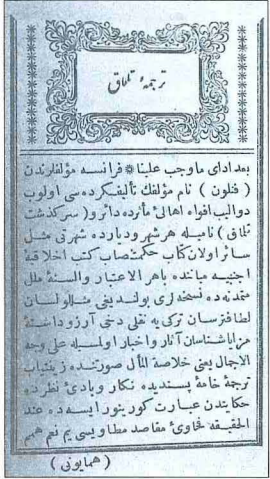 ترجمۀ تلماق
بعد ادای ما وجب علینا * فرانسه مؤلفلرندن
( فنلون ) نام مؤلفك تألیفکرده سی اولوب
دوالیب افواه اهالئ مأثرده دائر و ( سرکذشت
تلماق ) نامیله هر شهر و دیارده شهرتی مثل
سائر اولان کتاب حکمتنصاب کتب اخلاقیۀ
اجنبیه میاننده باهر الاعتبار و السنۀ ملل
متمدنه ده نسخه لری بولندیغی مثللو لسان
لطافترسان ترکی یه نقلی دخی آرزو داشتۀ
مزایاشناسان آثار و اخبار اولمسیله علی وجه
الاجمال یعنی خلاصة المأل صورتنده زینتیاب
ترجمۀ خامۀ پسندیده نکار و بادئ نظرده
حکایتدن عبارت کورینور ایسه ده عند
الحقیقه فحاوئ مقاصد مطاویسی یم نعم همم
( همایونی )